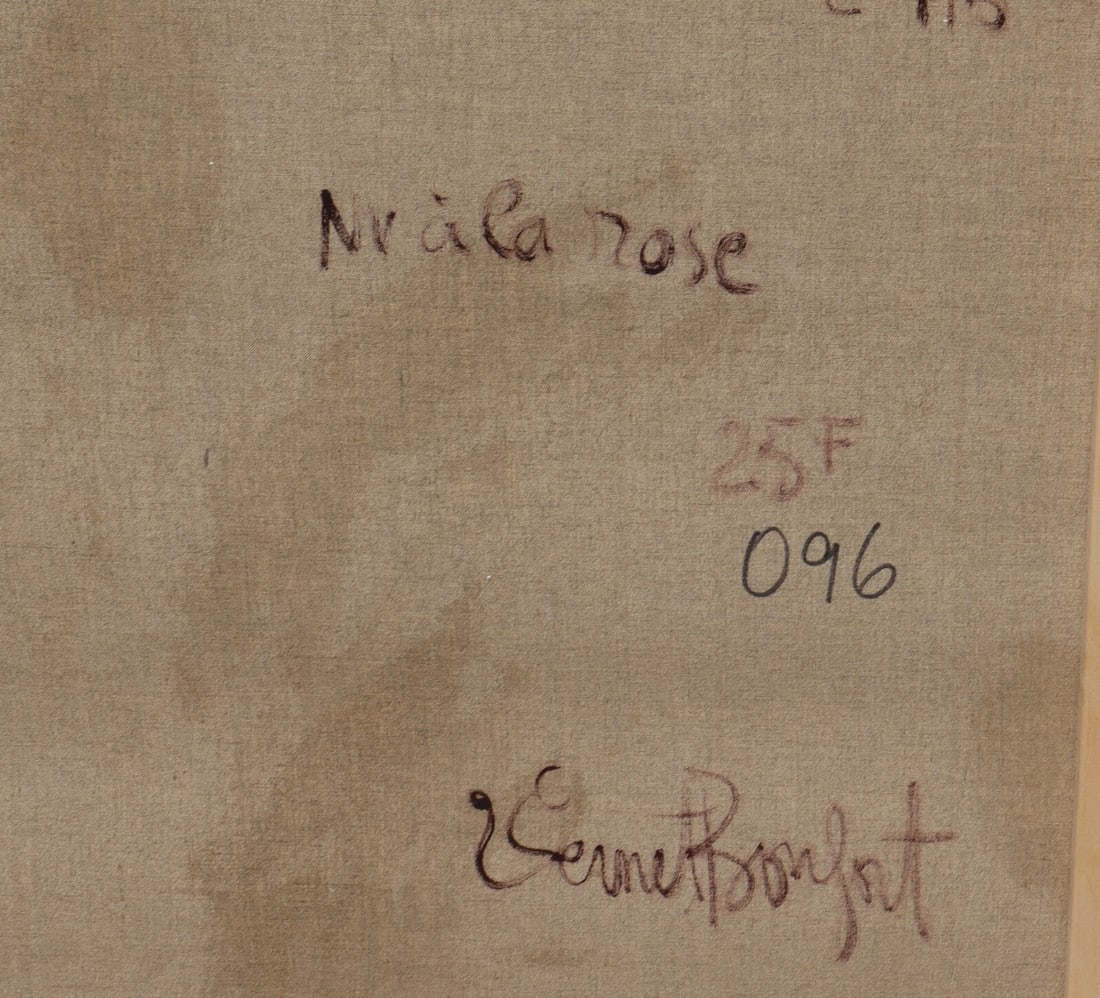 Nu à la rose
25F
096
Vernet Bonfort